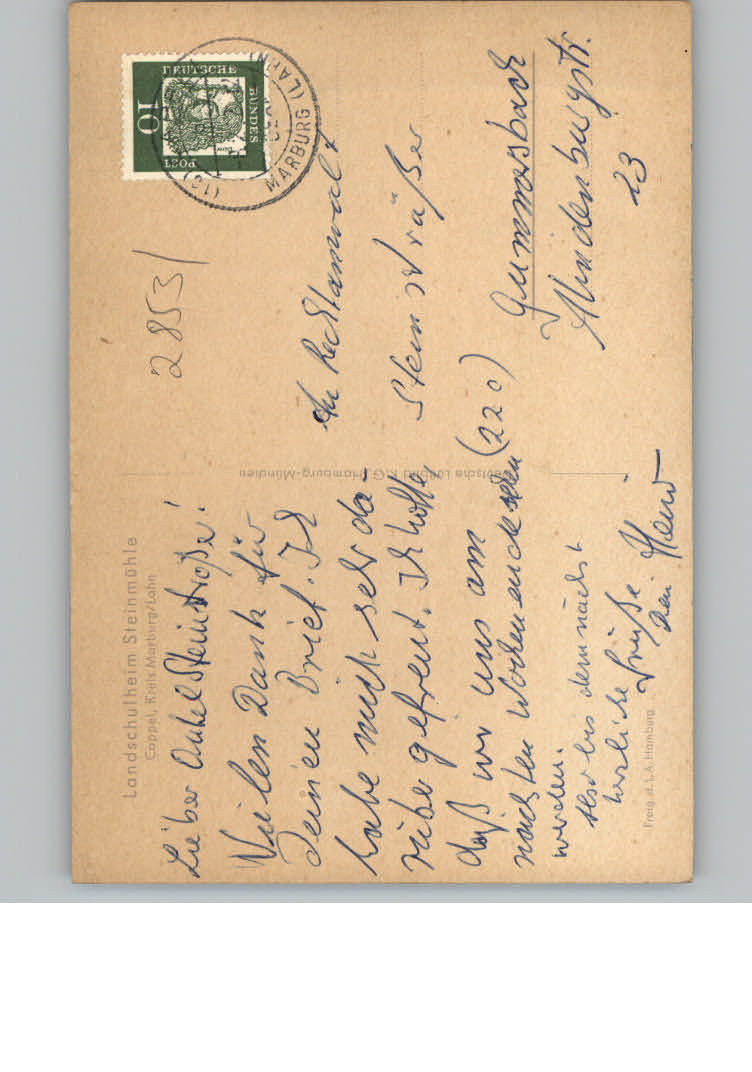 Landschulheim Steinmühle
Cappel, Kreis Marburg/Lahn
Lieber Onkel Steinstraße!
Vielen Dank für
Deinen Brief. Ich
habe mich sehr da-
rüber gefreut. Ich hoffe,
daß wir uns am
nächsten Wochenende sehen
werden.
also bis demnächst
herzliche Grüße
Dein
Freig. d. L.A. Hamburg
Deutsche Luftbild K.G., Hamburg-München
2853/
DEUTSCHE
BUNDES
POST
10
MARBURG (LAHN
An Rechtsanwalt
Steinsträßer
(22c) Gummersbach
Hindenburgstr.
23